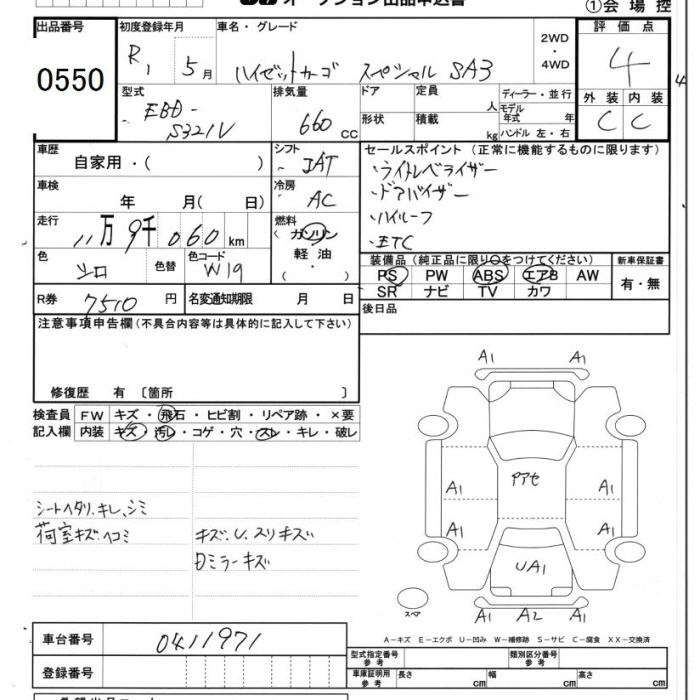 オークション出品申込書
①会場控
出品番号
0550
初度登録年月
R1 5月
車名・グレード
ハイゼットカーゴ スペシャル SA3
2WD
・
4WD
評価点
4
外装 内装
C C
型式
EBD-
S321V
排気量
660 cc
ドア
定員
人
形状
積載
kg
ディーラー・並行
モデル
年式 年
ハンドル 左・右
車歴
自家用・( )
シフト
IAT
車検
年 月( 日)
冷房
AC
走行
11万9千060km
燃料
(ガソリン
軽油
・ )
色
シロ
色替
色コード
W19
R券
7510 円
名変通知期限 月 日
セールスポイント(正常に機能するものに限ります)
・ライトレベライザー
・ドアバイザー
・ハイルーフ
・ETC
装備品(純正品に限り○をつけてください)
PS PW ABS エアB AW
SR ナビ TV カワ
新車保証書
有・無
後日品
注意事項申告欄(不具合内容等は具体的に記入して下さい)
修復歴 有 〔箇所 〕
検査員
記入欄
FW キズ・飛石・ヒビ割・リペア跡・×要
内装 キズ・汚レ・コゲ・穴・スレ・キレ・破レ
シートヘタリ、キレ、シミ
荷室キズ、ヘコミ
キズ、U、スリキズ
Dミラーキズ
A1 A1
A1 A1
A1 A1
Pアセ
UA1
A1 A2 A1
スペア
車台番号
0411971
登録番号
A-キズ E-エクボ U-凹み W-補修跡 S-サビ C-腐食 XX-交換済
型式指定番号
参考
類別区分番号
参考
車庫証明用
参考
長さ cm
幅 cm
高さ cm